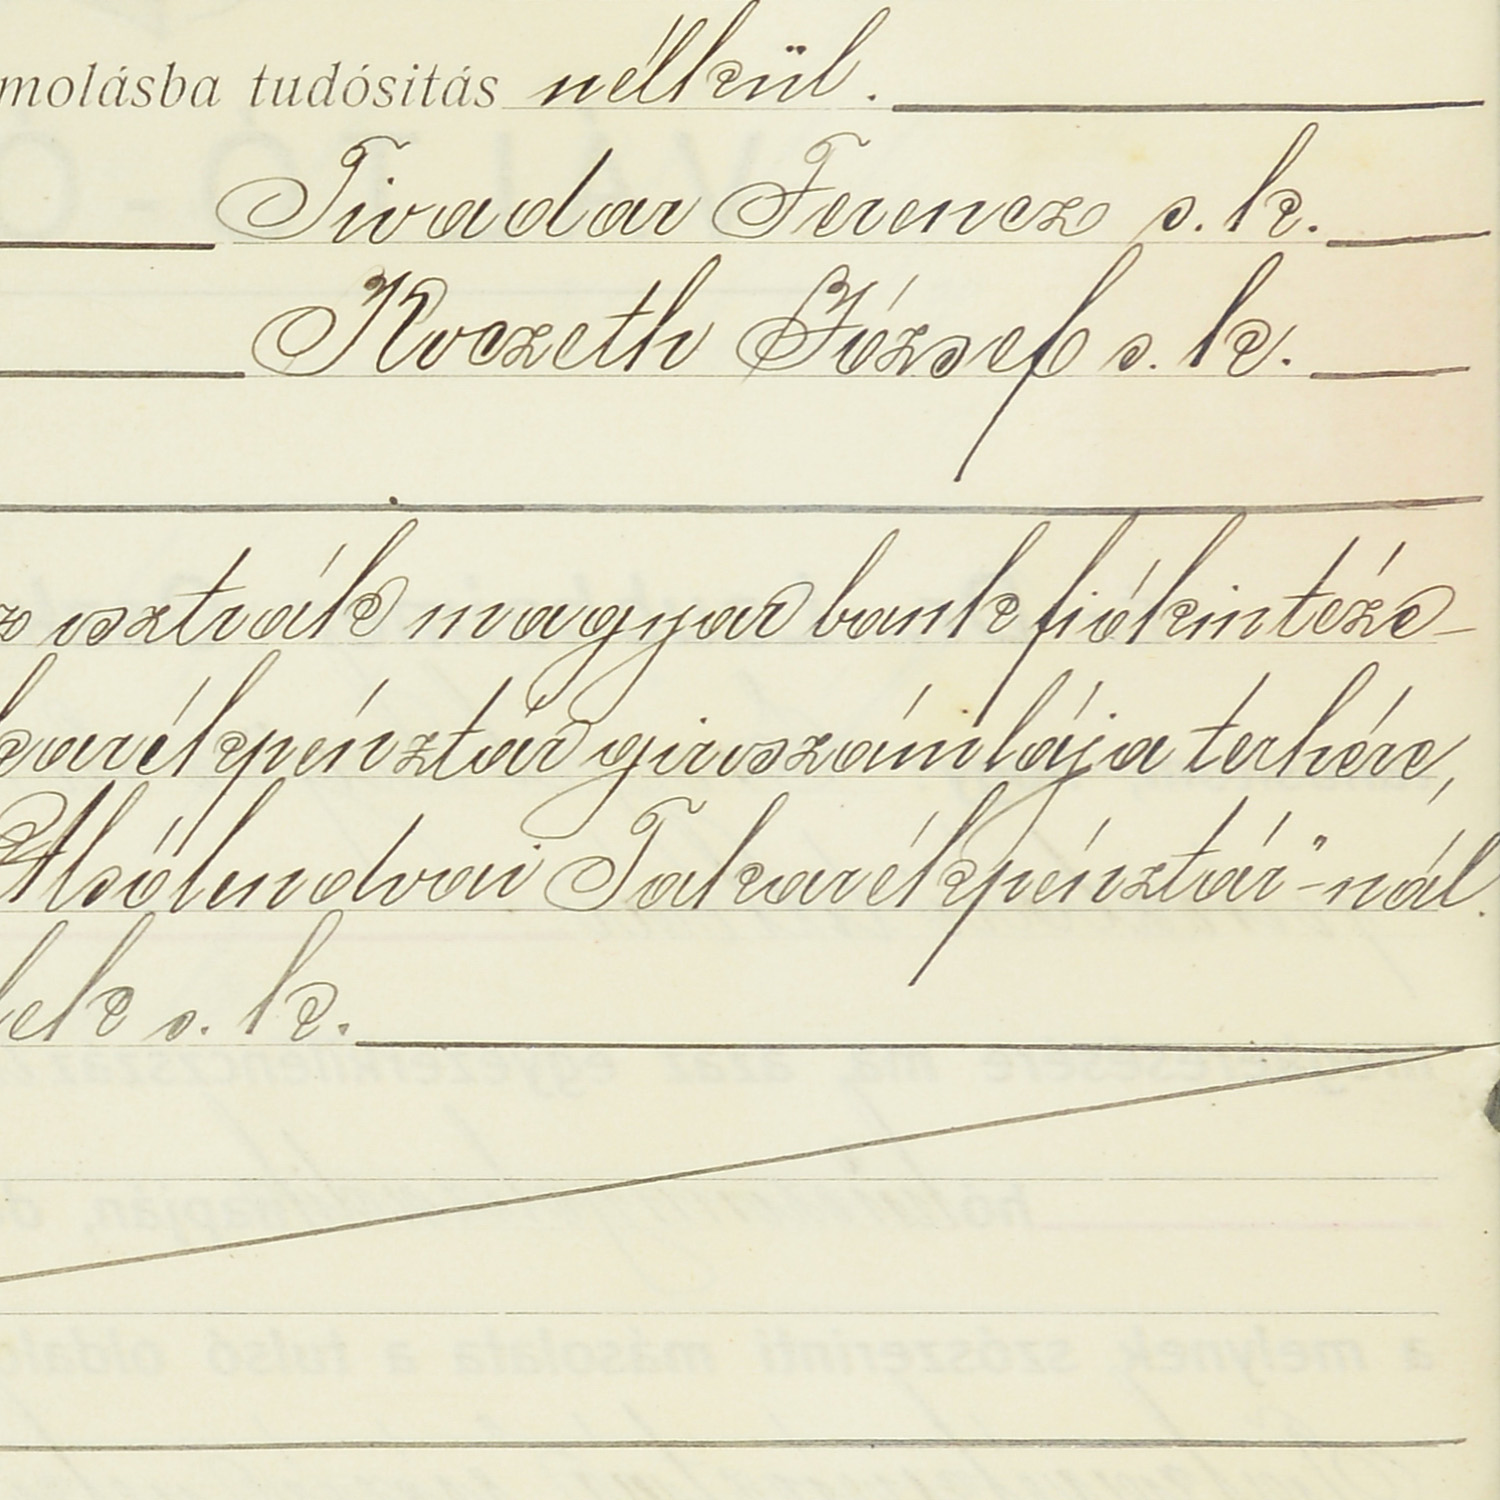 molásba tudósitás nélkül.
Tivadar Ferencz s. k.
Koczeth József s. k.
z osztrák magyar bank fiókintéze-
karékpénztár giroszámlája terhére,
Alsólendvai Takarékpénztár"-nál.
lek s. k.